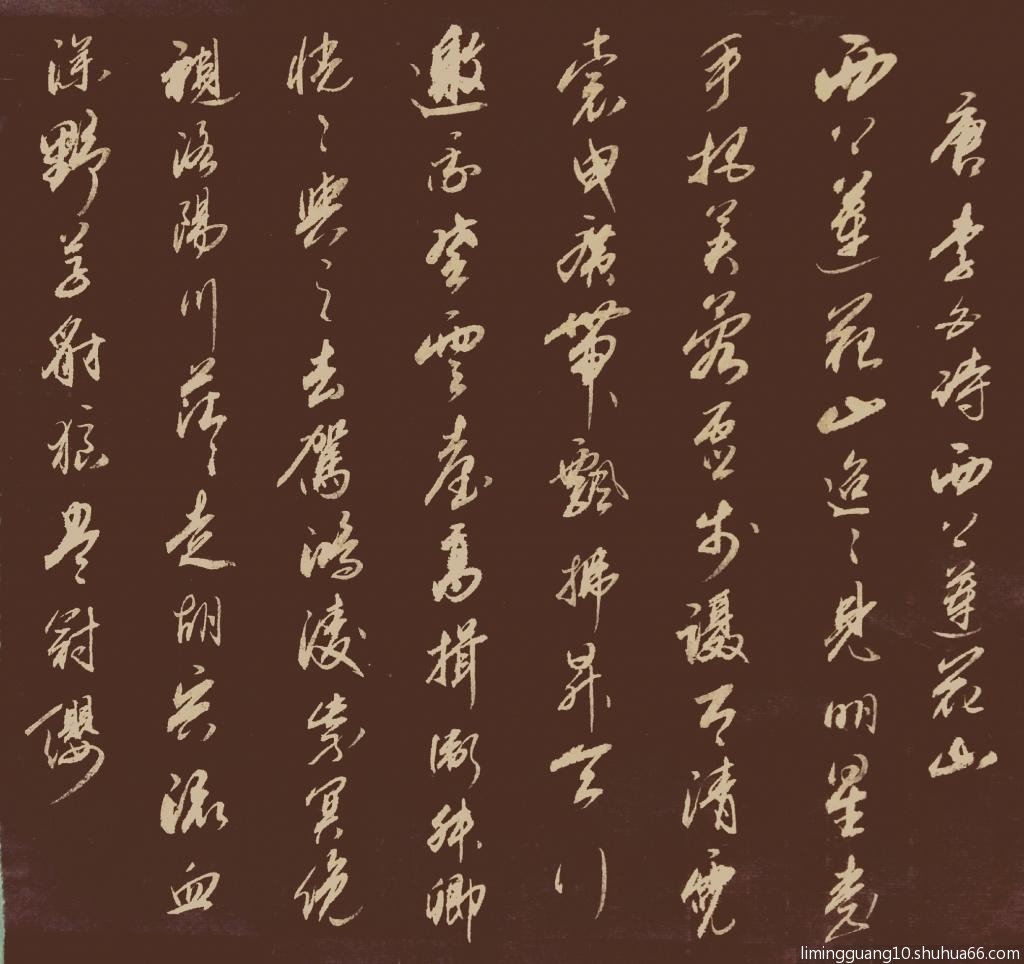 唐李白詩西上蓮花山
西上蓮花山迢〻見明星素
手把芙蓉虛步躡太清霓
裳曳廣帶飄拂昇天行
邀我登雲臺高揖衛叔卿
恍〻與之去駕鴻凌紫冥俛
視洛陽川茫〻走胡兵流血
塗野草豺狼盡冠纓
limingguang10.shuhua66.com